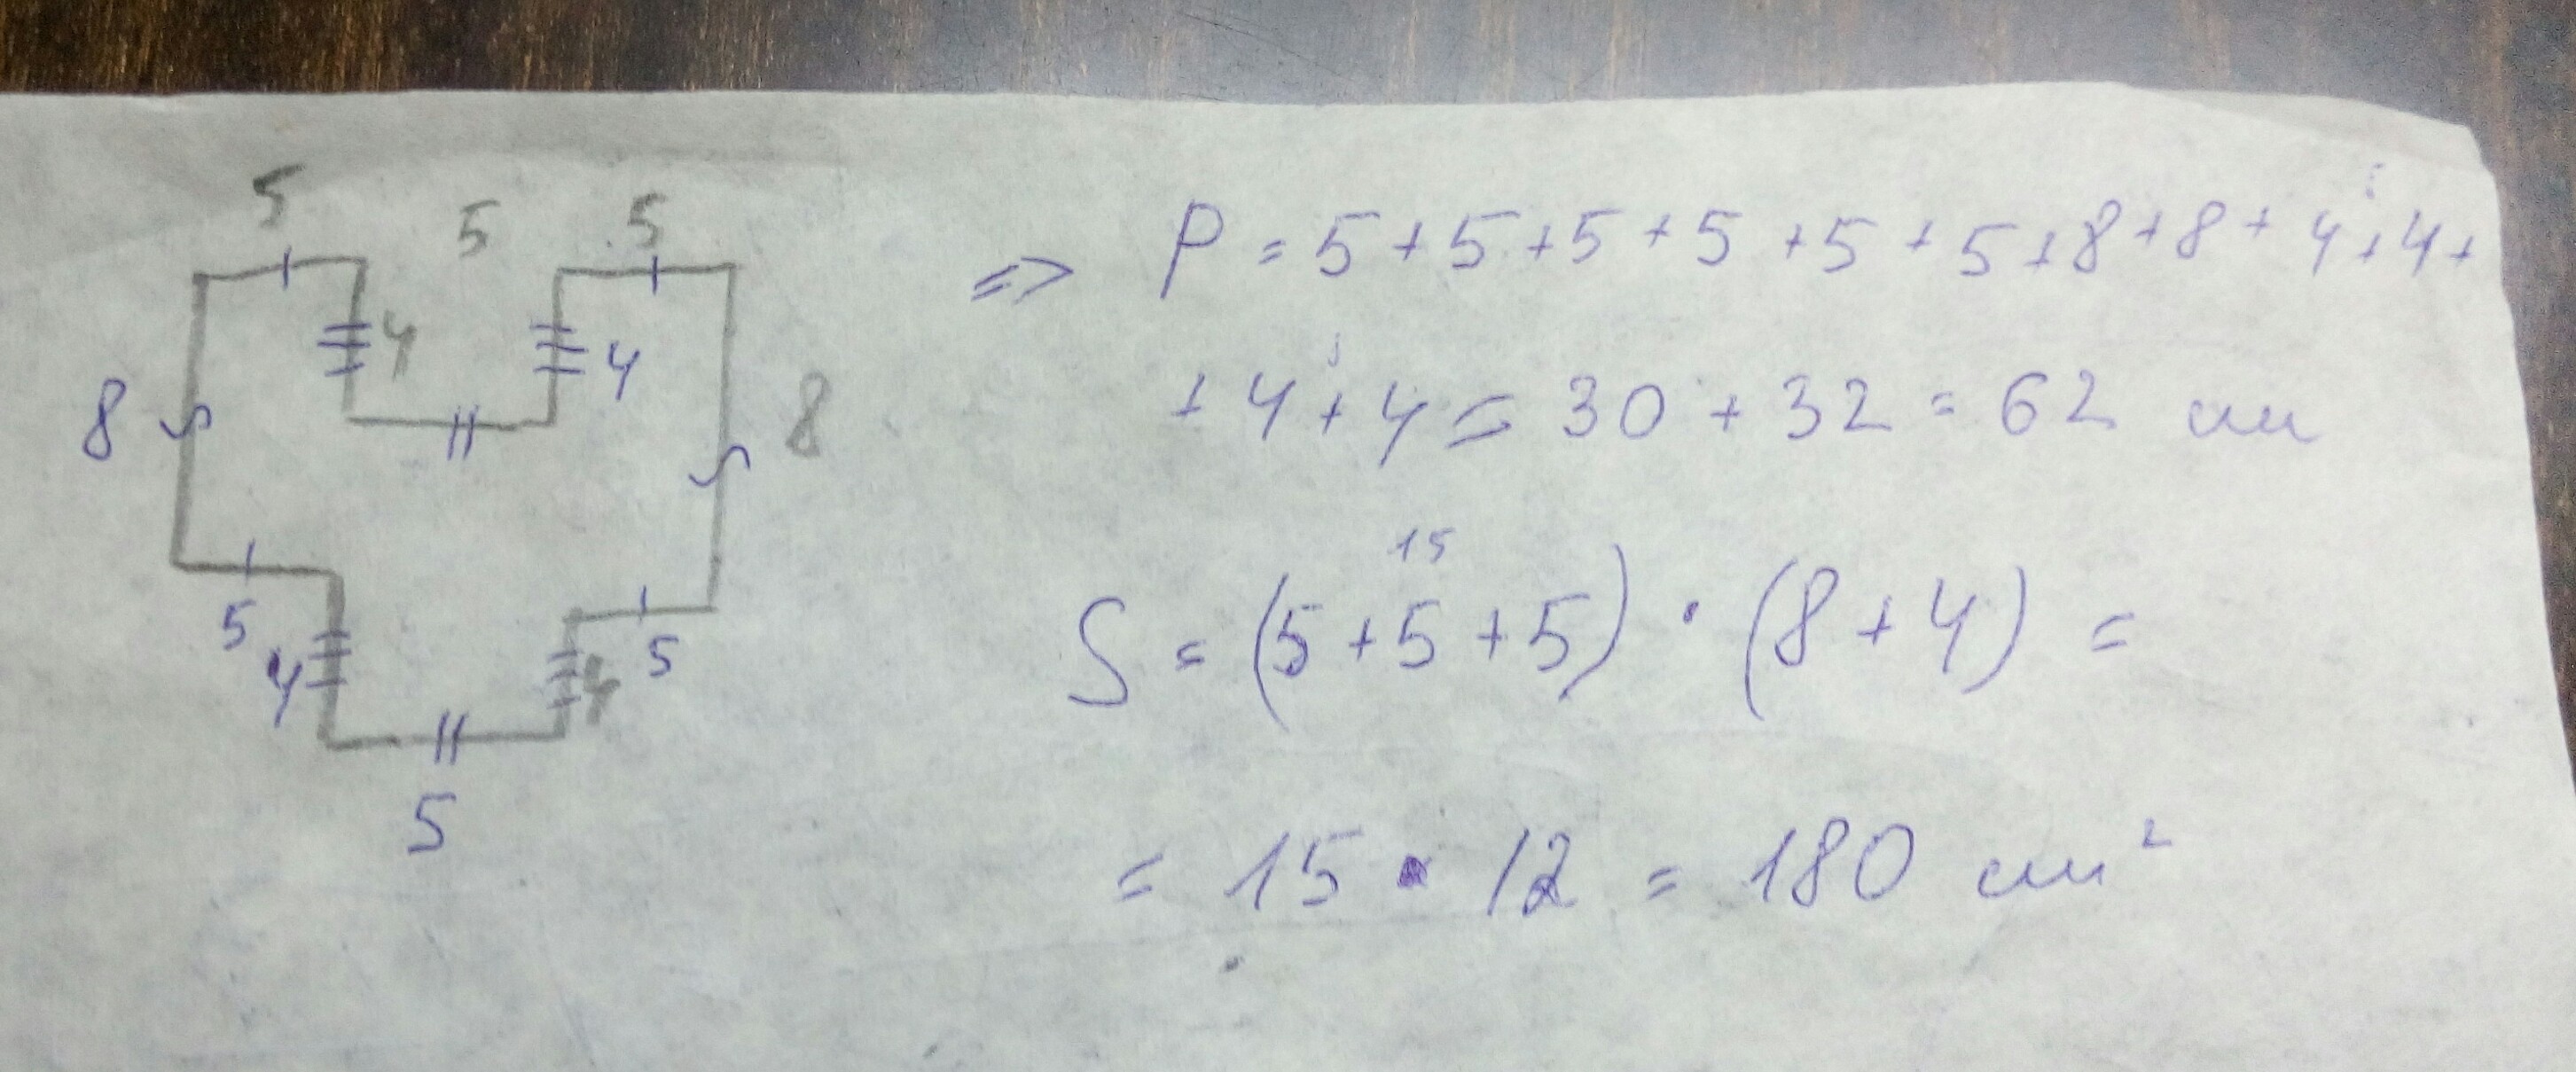 5 5 5
4 4
8 8
5 5
4 4
5
=> P = 5 + 5 + 5 + 5 + 5 + 5 + 8 + 8 + 4 + 4 +
+ 4 + 4 = 30 + 32 = 62 см
15
S = (5 + 5 + 5) · (8 + 4) =
= 15 · 12 = 180 см²